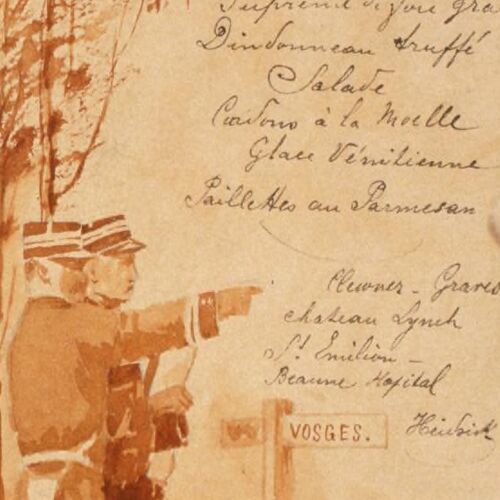 Suprême de foie gra
Dindonneau truffé
Salade
Cardons à la Moelle
Glace Vénitienne
Paillettes au Parmesan
Graves
chateau Lynch
St Emilion -
Beaune Hopital
VOSGES.